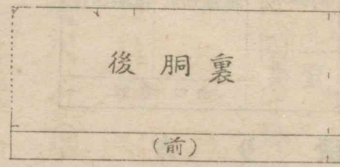 後胴裏
(前)